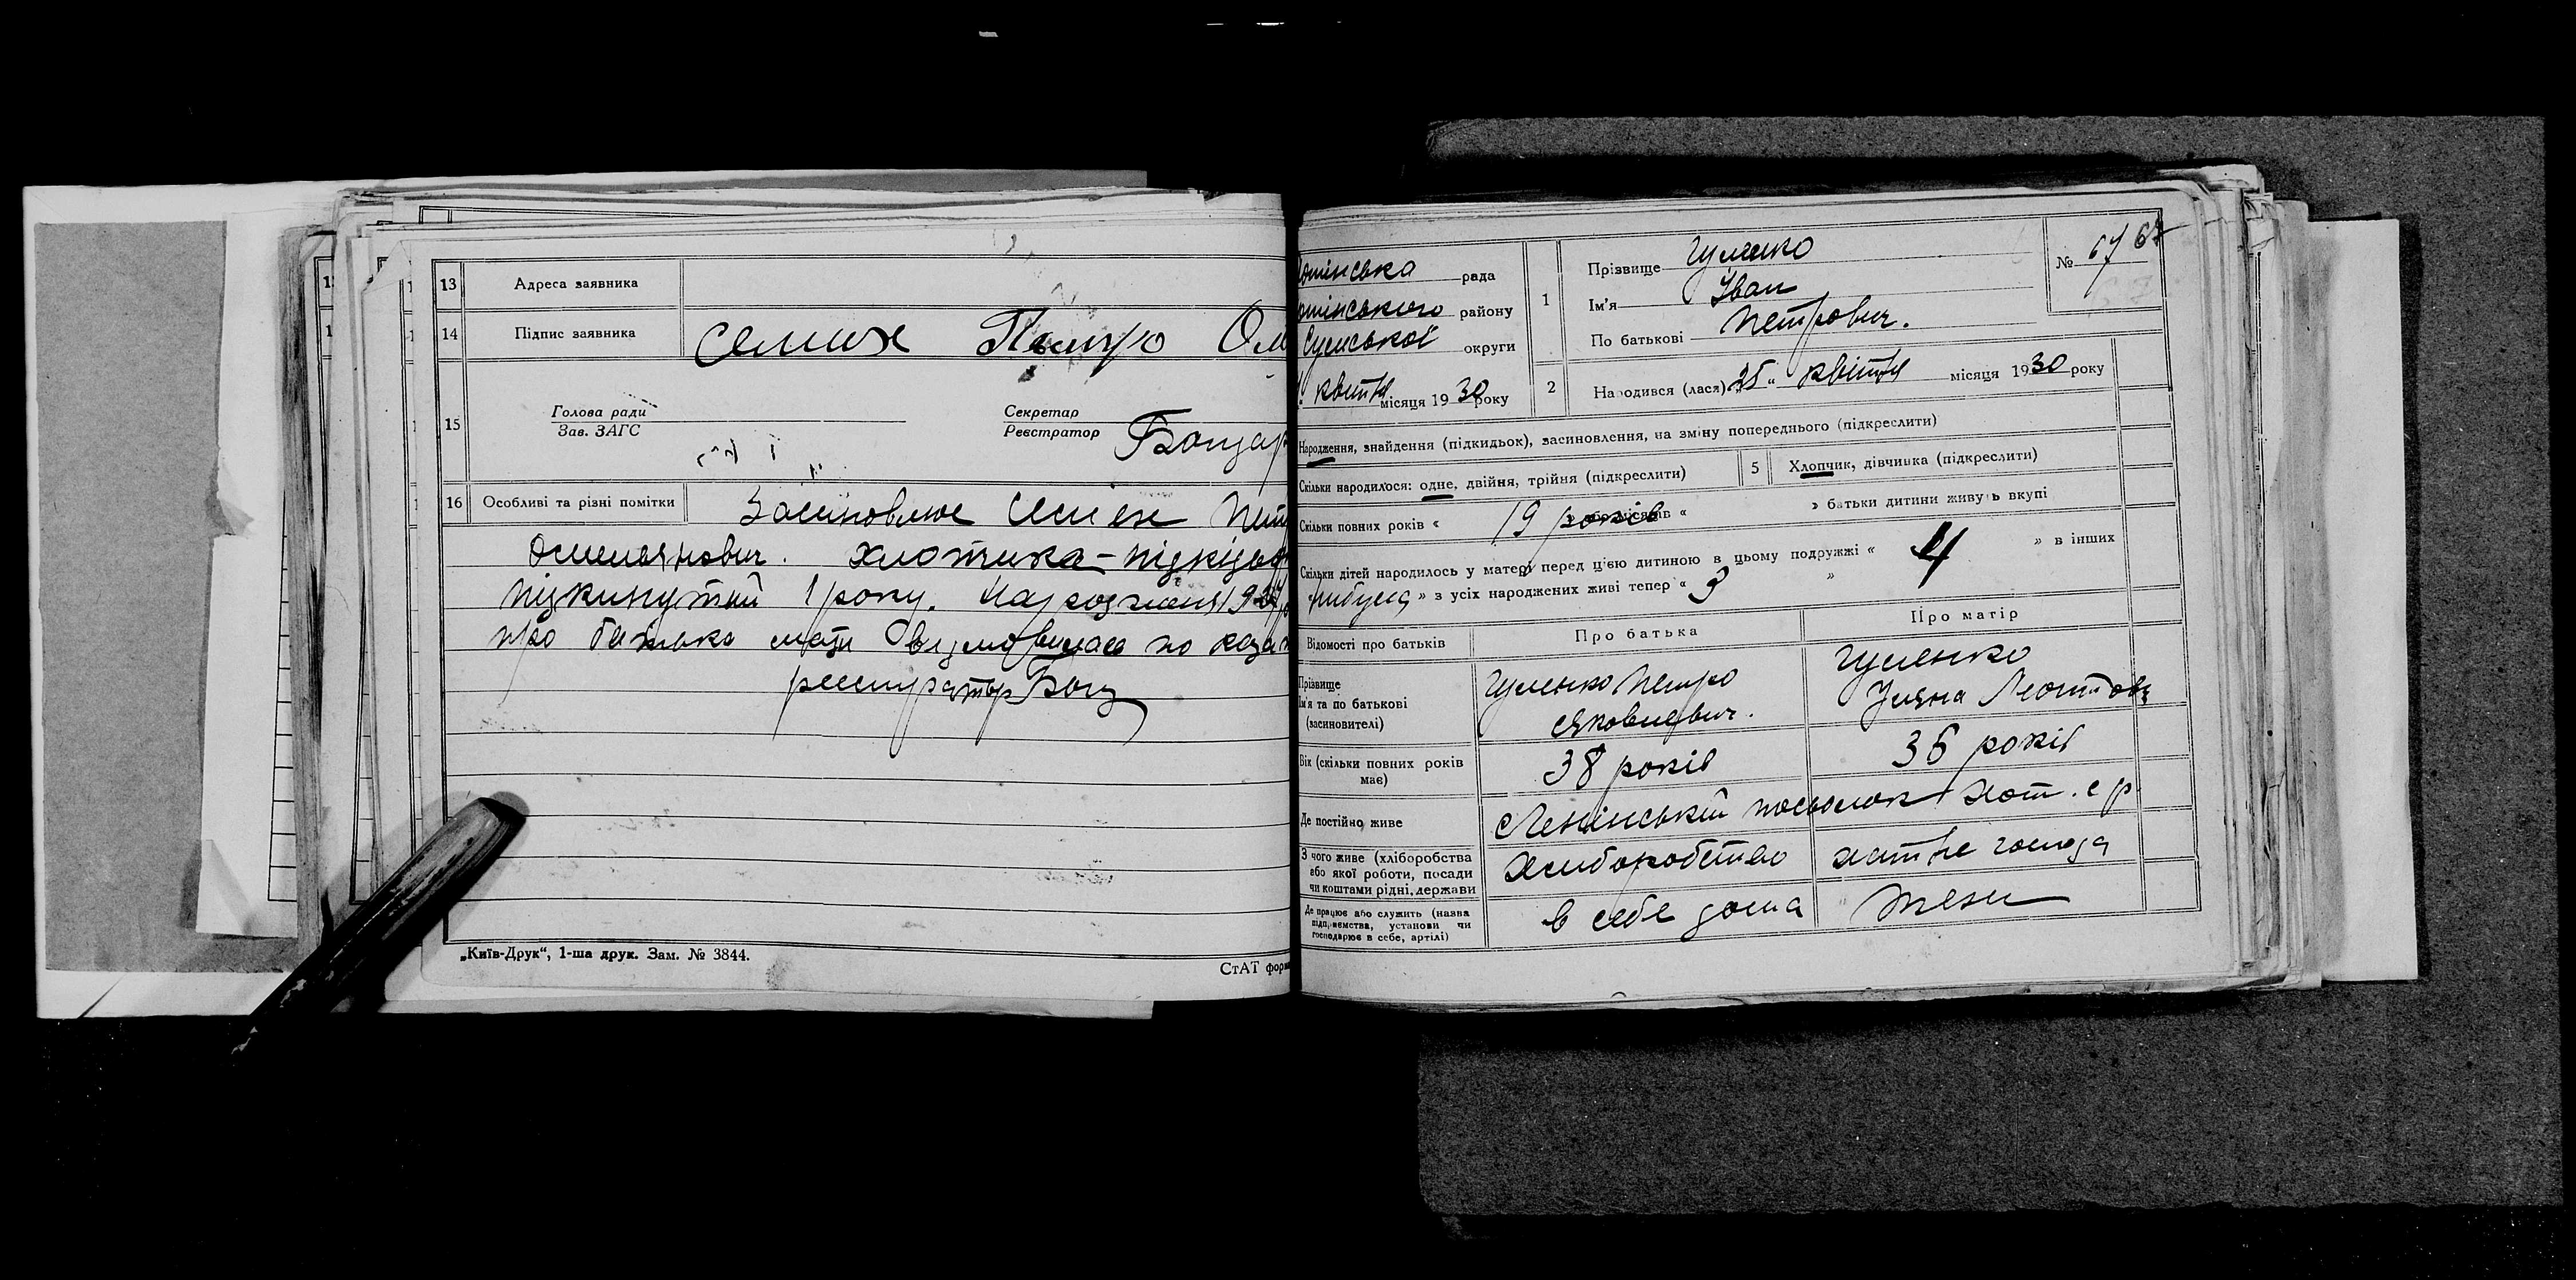 13 Адреса заявника
14 Підпис заявника Семих Петро Ом
15 Голова ради
Зав. ЗАГС
Секретар
Реєстратор Бонда
16 Особливі та різні помітки Засиновлює Семих Пет
Омелянович. хлопчика-підкидьо
підкинутий 1 року. Народження 192
про батька мати відмовилась по каза
реєстратор Бон
„Київ-Друк“, 1-ша друк. Зам. № 3844.
СтАТ фор
отінська рада
отінського району
Сумської округи
квітня місяця 1930 року
1 Прізвище Гуленко
Ім'я Іван
По батькові Петрович.
№ 67
2 Народився (лася) „25“ квітня місяця 1930 року
Народження, знайдення (підкидьок), засиновлення, на зміну попереднього (підкреслити)
Скільки народилося: одне, двійня, трійня (підкреслити)
5 Хлопчик, дівчинка (підкреслити)
Скільки повних років « 19 років » або місяців « » батьки дитини живуть вкупі
Скільки дітей народилось у матері перед цією дитиною в цьому подружжі « 4 » в інших
» з усіх народжених живі тепер « 3 »
Відомості про батьків Про батька Про матір
Прізвище
Ім'я та по батькові
(засиновителі)
Гуленко Петро
Яковлевич.
Гуленко
Уляна Леонтовн
Вік (скільки повних років має) 38 років 36 років
Де постійно живе Ленінський посьолок Хот. с р.
З чого живе (хліборобства або якої роботи, посади чи коштами рідні, держави хліборобство хатнє господа
Де працює або служить (назва підприємства, установи чи господарює в себе, артілі) в себе дома тежи